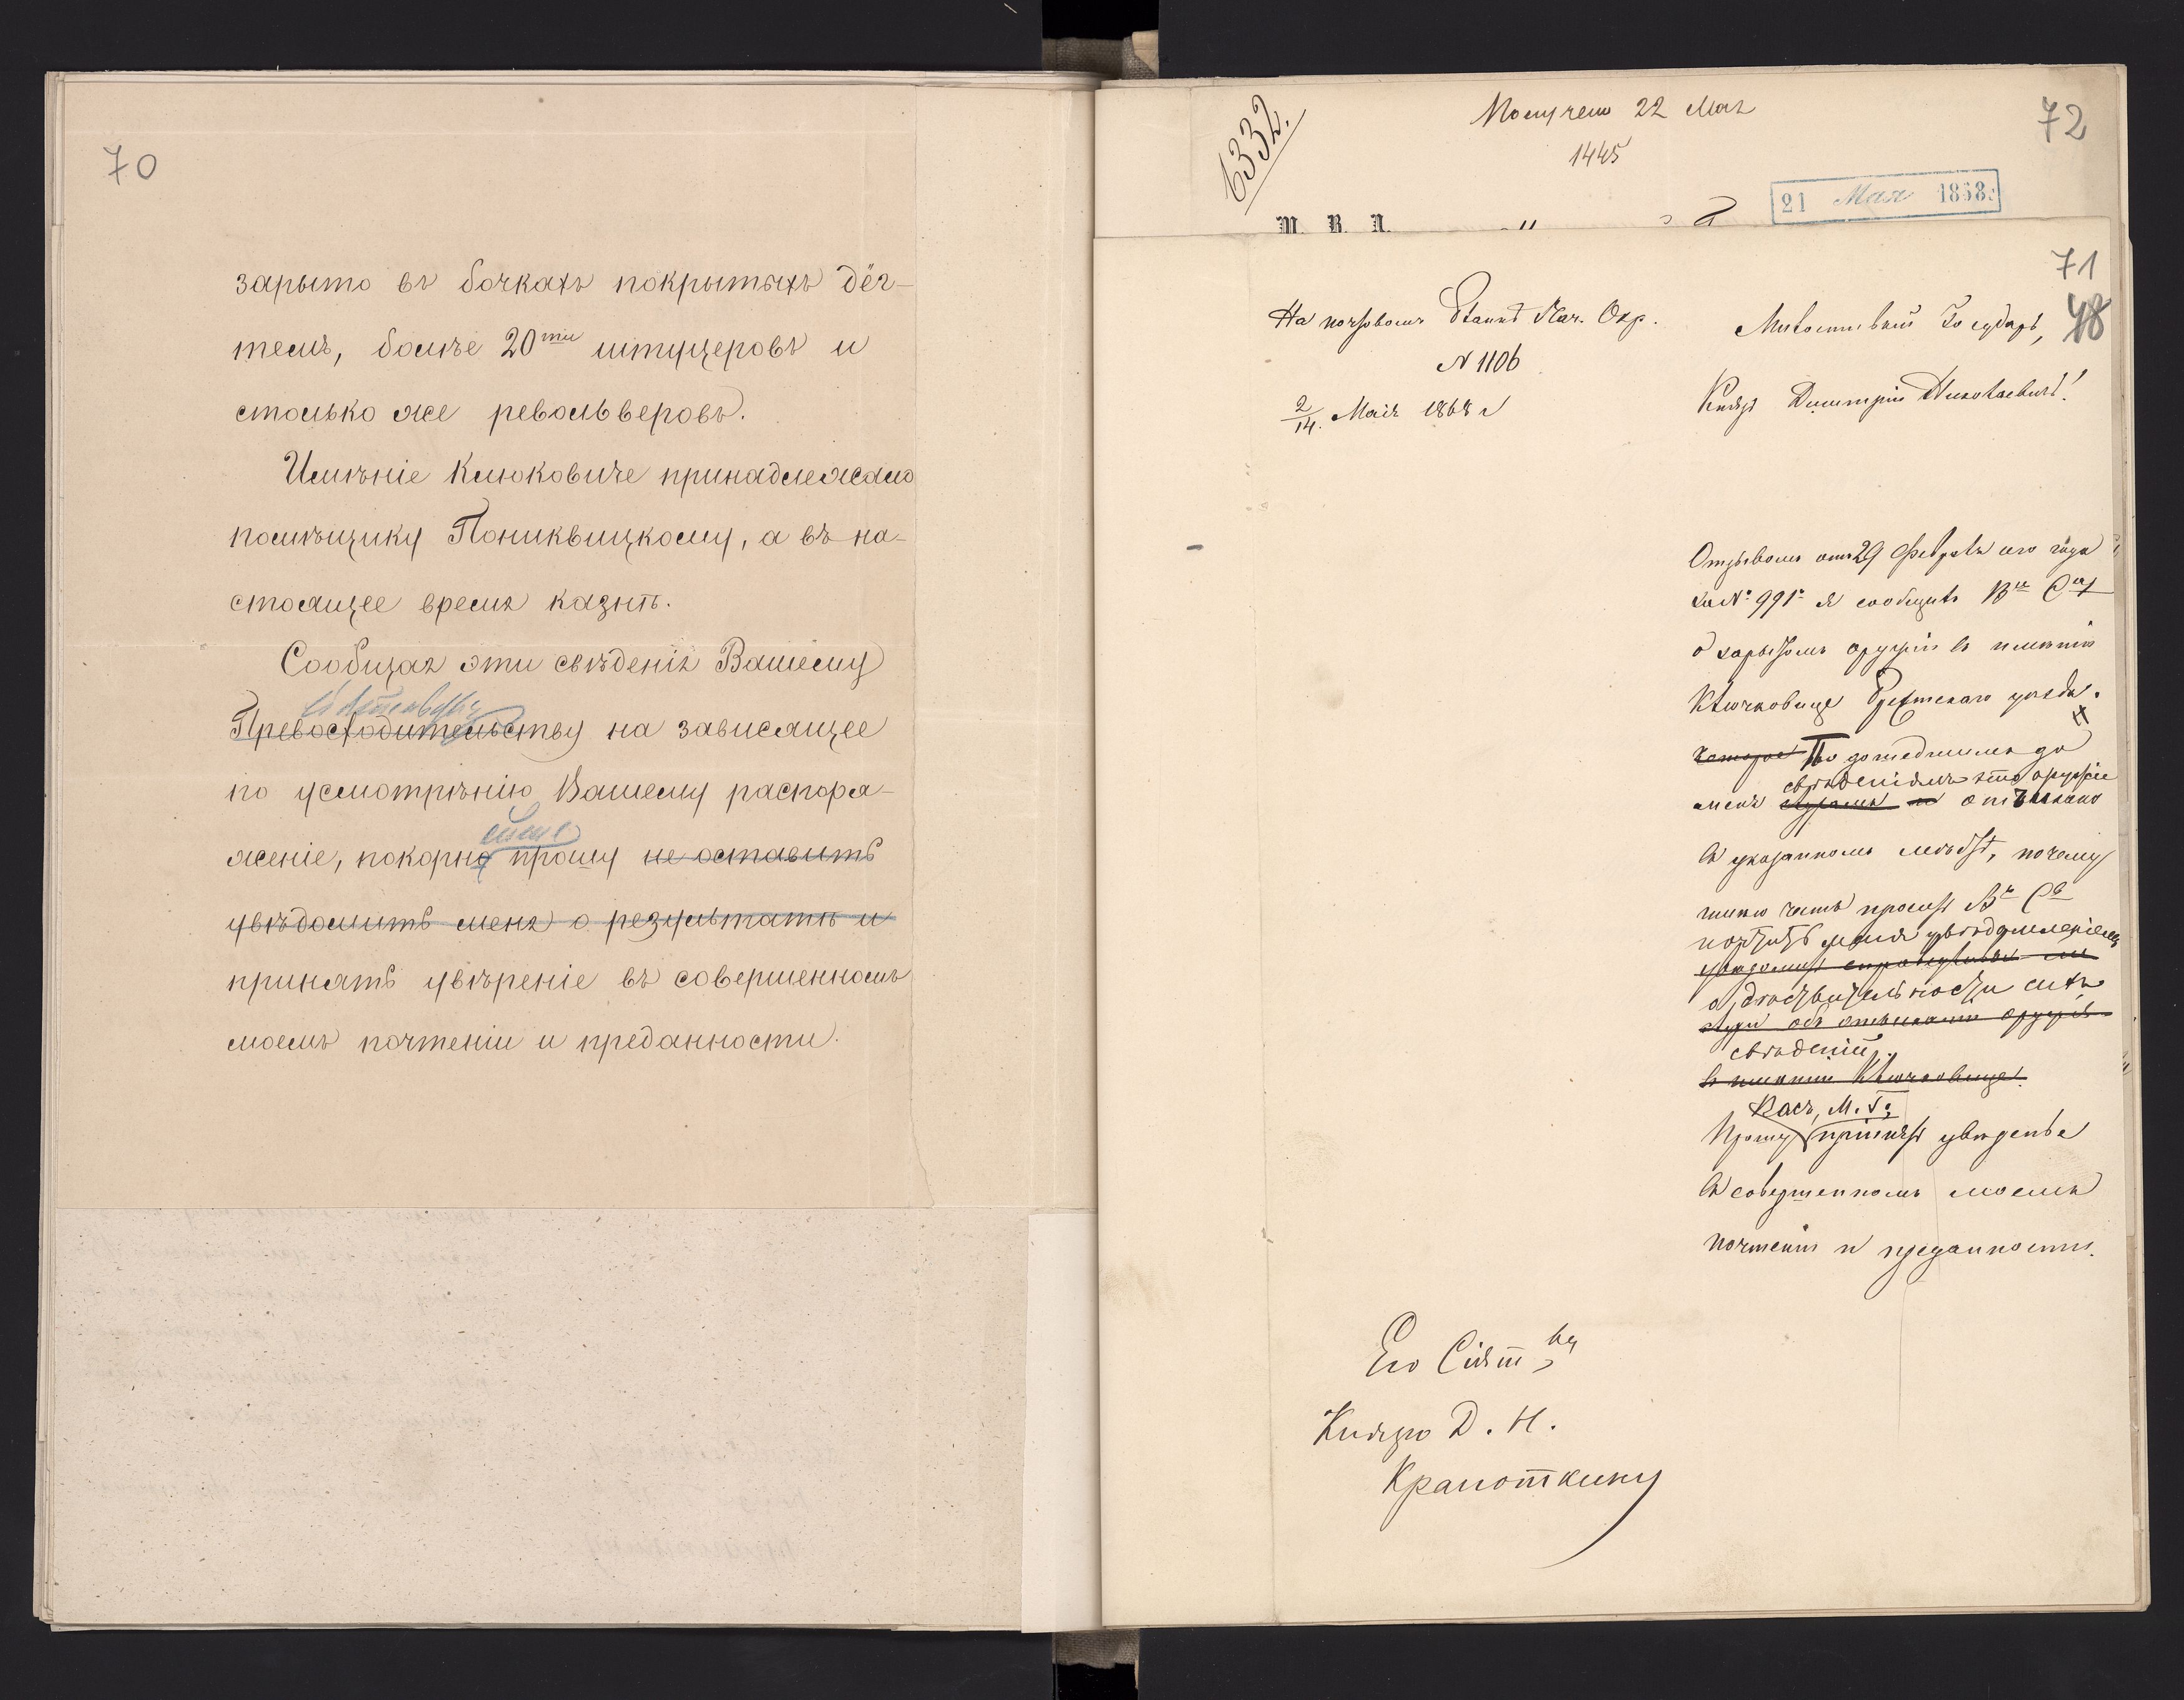 70
зарыто въ бочкахъ покрытыхъ дёг-
темъ, болѣе 20ти штуцеровъ и
столько же револьверовъ.
Имѣніе Клюковиче принадлежало
помѣщику Пониквицкому, а въ на-
стоящее время казнѣ.
Сообщая эти свѣденія Вашему
Сіятельству
Превосходительству на зависящее
по усмотрѣнію Вашему распоря-
женіе, покорно прошу не оставить
увѣдомить меня о результатѣ и
принять увѣреніе въ совершенномъ
моемъ почтеніи и преданности.
6332.
Получено 22 Мая
1445
72
21 Мая 1868
М. В. Д.
71
48
На почтовомъ бланкѣ Нач. Окр.
N 1106
2/14. Мая 1868 г
Милостивый Государь,
Князь Дмитрій Николаевичъ!
Отзывомъ отъ 29 Февраля сего года
за № 991 я сообщилъ Вму Сву
о зарытомъ оружіи въ имѣніи
Ключковице Брестскаго уѣзда.
которое По дошедшимъ до
свѣдѣніямъ это оружіе
меня слухамъ отыскано
въ указанномъ мѣстѣ, почему
имѣю честь просить Ве Св
почтить меня увѣдомленіемъ
увѣдомить справедливы ли
о дѣйствительности сихъ
слухи объ отысканіи оружія
свѣдѣній.
въ имѣніи Ключковице.
Васъ, М. Г.,
Прошу принять увѣреніе
въ совершенномъ моемъ
почтеніи и преданности.
Его Сіят ву
Князю Д. Н.
Крапоткину